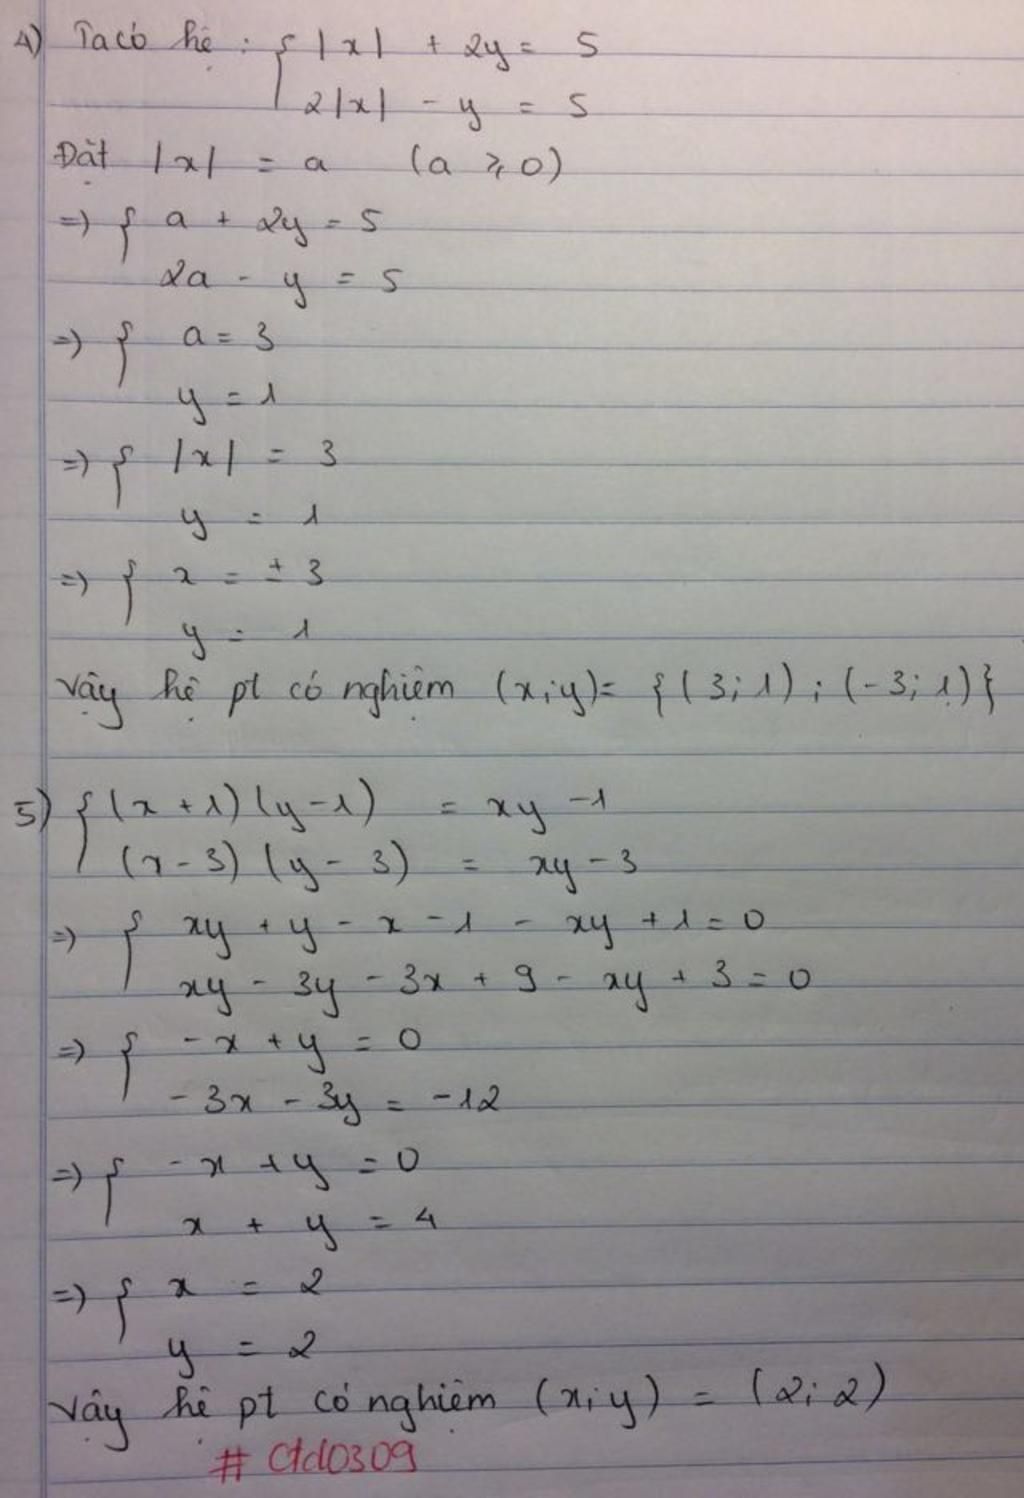 4) Ta có hệ : { |x| + 2y = 5
2|x| - y = 5
Đặt |x| = a (a ⩾ 0)
=> { a + 2y = 5
2a - y = 5
=> { a = 3
y = 1
=> { |x| = 3
y = 1
=> { x = ± 3
y = 1
Vậy hệ pt có nghiệm (x;y)= {(3;1) ; (-3;1)}
5) { (x+1)(y-1) = xy -1
(x-3)(y-3) = xy-3
=> { xy + y - x - 1 - xy + 1 = 0
xy - 3y - 3x + 9 - xy + 3 = 0
=> { -x + y = 0
-3x - 3y = -12
=> { -x + y = 0
x + y = 4
=> { x = 2
y = 2
Vậy hệ pt có nghiệm (x;y) = (2;2)